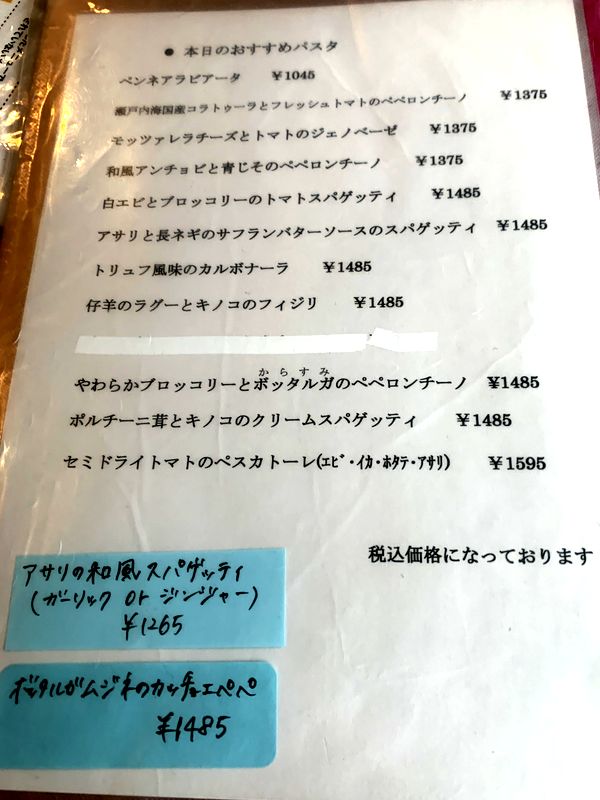 ● 本日のおすすめパスタ
ペンネアラビアータ ￥1045
瀬戸内海国産コラトゥーラとフレッシュトマトのペペロンチーノ ￥1375
モッツァレラチーズとトマトのジェノベーゼ ￥1375
和風アンチョビと青じそのペペロンチーノ ￥1375
白エビとブロッコリーのトマトスパゲッティ ￥1485
アサリと長ネギのサフランバターソースのスパゲッティ ￥1485
トリュフ風味のカルボナーラ ￥1485
仔羊のラグーとキノコのフィジリ ￥1485
からすみ
やわらかブロッコリーとボッタルガのペペロンチーノ ￥1485
ポルチーニ茸とキノコのクリームスパゲッティ ￥1485
セミドライトマトのペスカトーレ(ｴﾋﾞ・ｲｶ・ﾎﾀﾃ・ｱｻﾘ) ￥1595
税込価格になっております
アサリの和風スパゲッティ
(ガーリック or ジンジャー)
￥1265
ボッタルガムジネのカッチョエペペ
￥1485